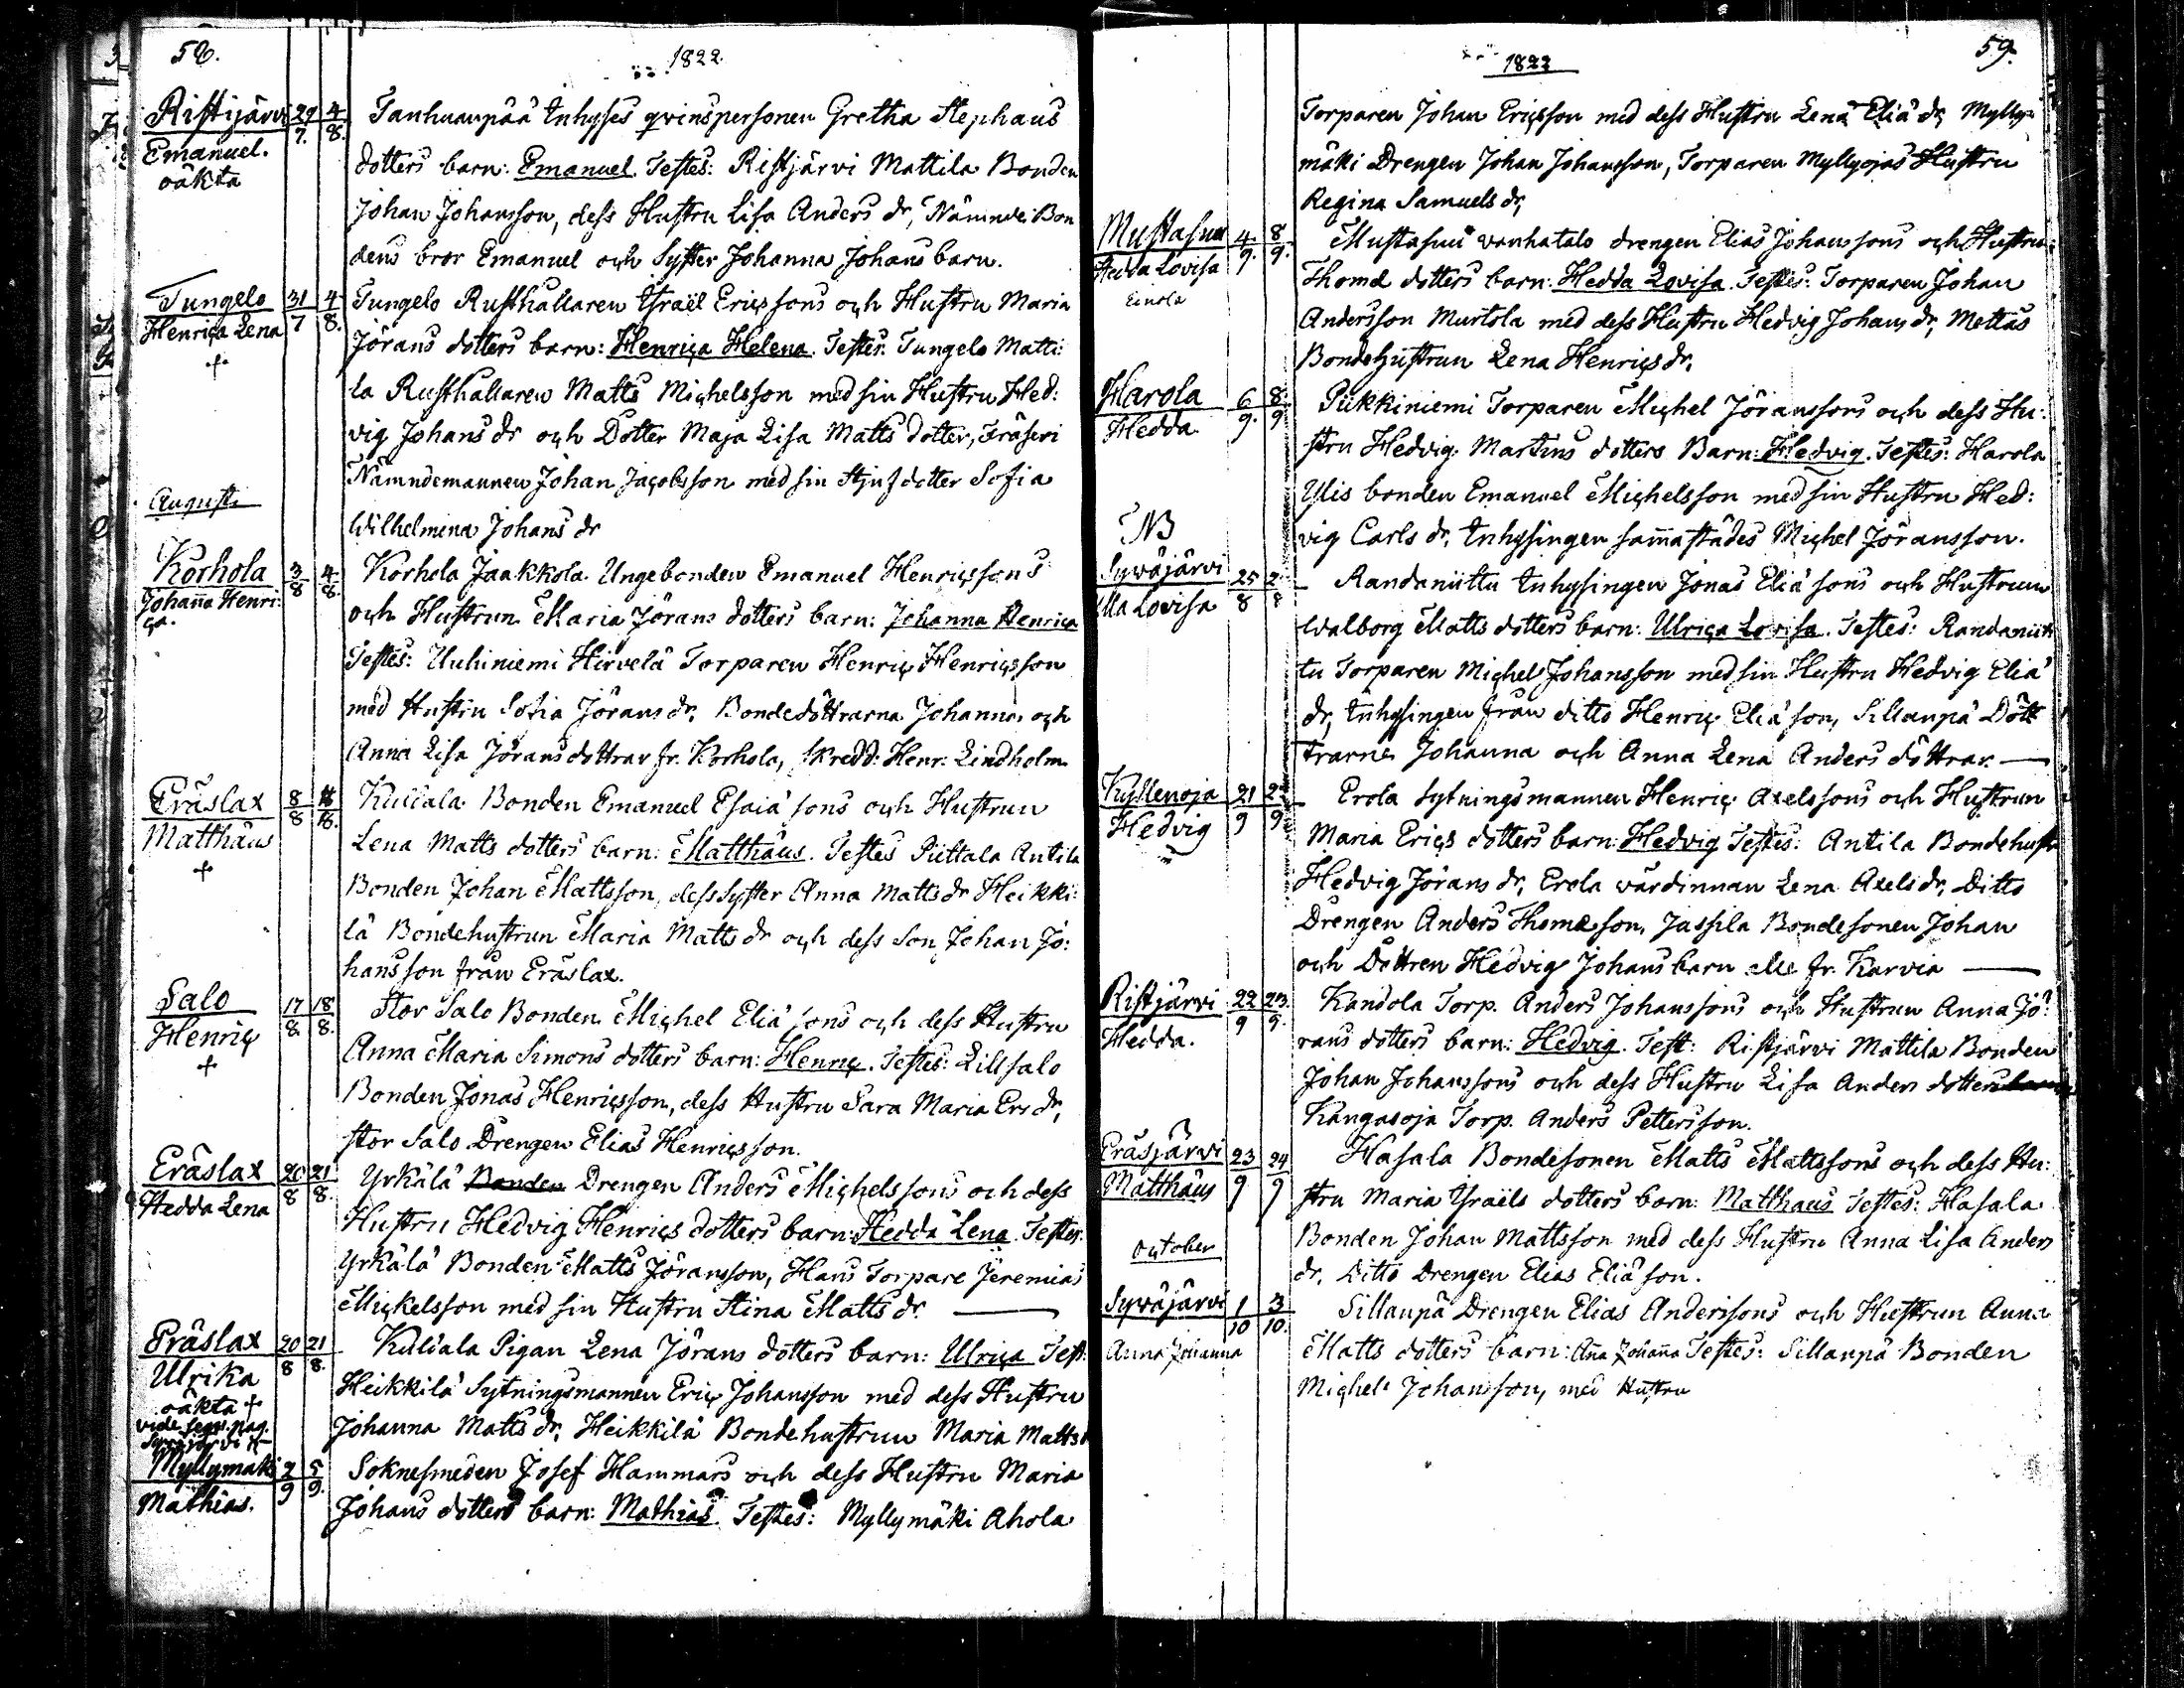 58.
1822
Ristijärvi 29/7. 4/8. Tanhuanpää Inhyses qvinspersonen Gretha Stephans
Emanuel. dotters barn: Emanuel. Testes: Ristjärvi Mattila Bonden
oäkta
Johan Johansson, dess Hustru Lisa Anders dr, Nämnde Bon
dens bror Emanuel och Syster Johanna Johans barn.
Tungelo 31/7 4/8. Tungelo Rusthållaren Israël Ericssons och Hustru Maria
Henrica Lena Jörans dotters barn: Henrica Helena. Testes: Tungelo Matti:
+
la Rusthållaren Matts Michelsson med sin Hustru Hed:
vig Johans dr och Dotter Maja Lisa Matts dotter,
Nämndemannen Johan Jacobsson med sin Stjufdotter Sofia
Augusti
Wilhelmina Johans dr
Korhola 3/8 4/8. Korhola Jaakkola Ungebonden Emanuel Henricssons
Johanna Henri:
ca.
och Hustrun Maria Jörans dotters barn: Johanna Henrica
Testes: Uuhiniemi Hirvelä Torparen Henric Henricsson
med Hustru Sofia Jörans dr, Bondedöttrarna Johanna och
Anna Lisa Jörans döttrar fr. Korhola, Skredd: Henr: Lindholm
Eräslax 8/8 Kullala Bonden Emanuel Esaiä sons och Hustrun
Matthäus
+
Lena Matts dotters barn: Matthäus. Testes Antila
Bonden Johan Mattsson, dess Syster Anna Matts dr Heikki:
lä Bondehustrun Maria Matts dr och dess Son Johan Jo:
hansson från Eräslax.
Salo 17/8. 18/8. Stor Salo Bonden Michel Eliä sons och dess Hustru
Henric
+
Anna Maria Simons dotters barn: Henric. Testes: Lillsalo
Bonden Jonas Henricsson, dess Hustru Sara Maria Ers dr,
Stor Salo Drengen Elias Henricsson.
Eräslax 20/8 21/8. Yrkälä Bonden Drengen Anders Michelssons och dess
Hedda Lena Hustru Hedvig Henrics dotters barn: Hedda Lena. Testes.
Yrkälä Bonden Matts Jöransson, Hans Torpare Jeremias
Mickelsson med sin Hustru Stina Matts dr.
Eräslax 20/8 21/8. Kullala Pigan Lena Jörans dotters barn: Ulrica Test:
Ulrika
oäkta +
Heikkilä Sytningsmannen Eric Johansson med dess Hustru
vide seqv. pag.
Syväjärvi
Johanna Matts dr, Heikkilä Bondehustrun Maria Matts d
Myllymäki 2/9 5/9. Soknesmeden Josef Hammars och dess Hustru Maria
Mathias. Johans dotters barn: Mathias. Testes: Myllymäki Ahola
59.
1822
Torparen Johan Ericsson med dess Hustru Lena Eliä dr, Mylly=
mäki Drengen Johan Johansson, Torparen Myllyojas Hustru
Regina Samuels dr,
Mustasuu 4/9. 8/9. Mustasuu vanhatalo drengen Elias Johanssons och Hustru
Hedda Lovisa Thomæ dotters barn: Hedda Lovisa. Testes: Torparen Johan
Andersson Murtola med dess Hustru Hedvig Johans dr, Mettäs
Bondehustrun Lena Henrics dr,
Harola 6/9. 8/9. Pukkiniemi Torparen Michel Jöranssons och dess Hu:
Hedda. stru Hedvig Martins dotters Barn: Hedvig. Testes: Harola
Ylis bonden Emanuel Michelsson med sin Hustru Hed:
NB vig Carls dr, Inhysingen sam̄astädes Michel Jöransson.
Syväjärvi 25/8 Randaniittu Inhysingen Jonas Eliä sons och Hustrun
Ulla Lovisa Walborg Matts dotters barn: Ulrica Lovisa. Testes: Randaniit
tu Torparen Michel Johansson med sin Hustru Hedvig Eliä
dr, Inhysingen från ditto Henric Eliä son, Sillanpä Dött
trarne Johanna och Anna Lena Anders döttrar.
Kyllenoja 21/9 Erola Sytningsmannen Henric Axelssons och Hustrun
Hedvig Maria Erics dotters barn: Hedvig Testes: Antila Bondehustr
Hedvig Jörans dr, Erola wärdinnan Lena Axels dr, Ditto
Drengen Anders Thomæson, Jassila Bondesonen Johan
och Dottren Hedvig Johans barn alle fr. Karvia
Ristjärvi 22/9 23/9. Kandola Torp. Anders Johanssons och Hustrun Anna Jö:
Hedda. rans dotters barn: Hedvig. Test: Ristjärvi Mattila Bonden
Johan Johanssons och dess Hustru Lisa Anders dotters
Kangasoja Torp. Anders Pettersson.
Eräsjärvi 23/9 24/9 Hasala Bondesonen Matts Mattssons och dess Hu:
Matthäus stru Maria Israëls dotters barn: Matthaus Testes: Hasala
October
Bonden Johan Mattsson med dess Hustru Anna Lisa Anders
dr, Ditto Drengen Elias Eliä son.
Syväjärvi 1/10 3/10. Sillanpä Drengen Elias Anderssons och Hustrun Anna
Anna Johanna Matts dotters barn: An̄a Johan̄a Testes: Sillanpä Bonden
Michel Johansson, med Hustru